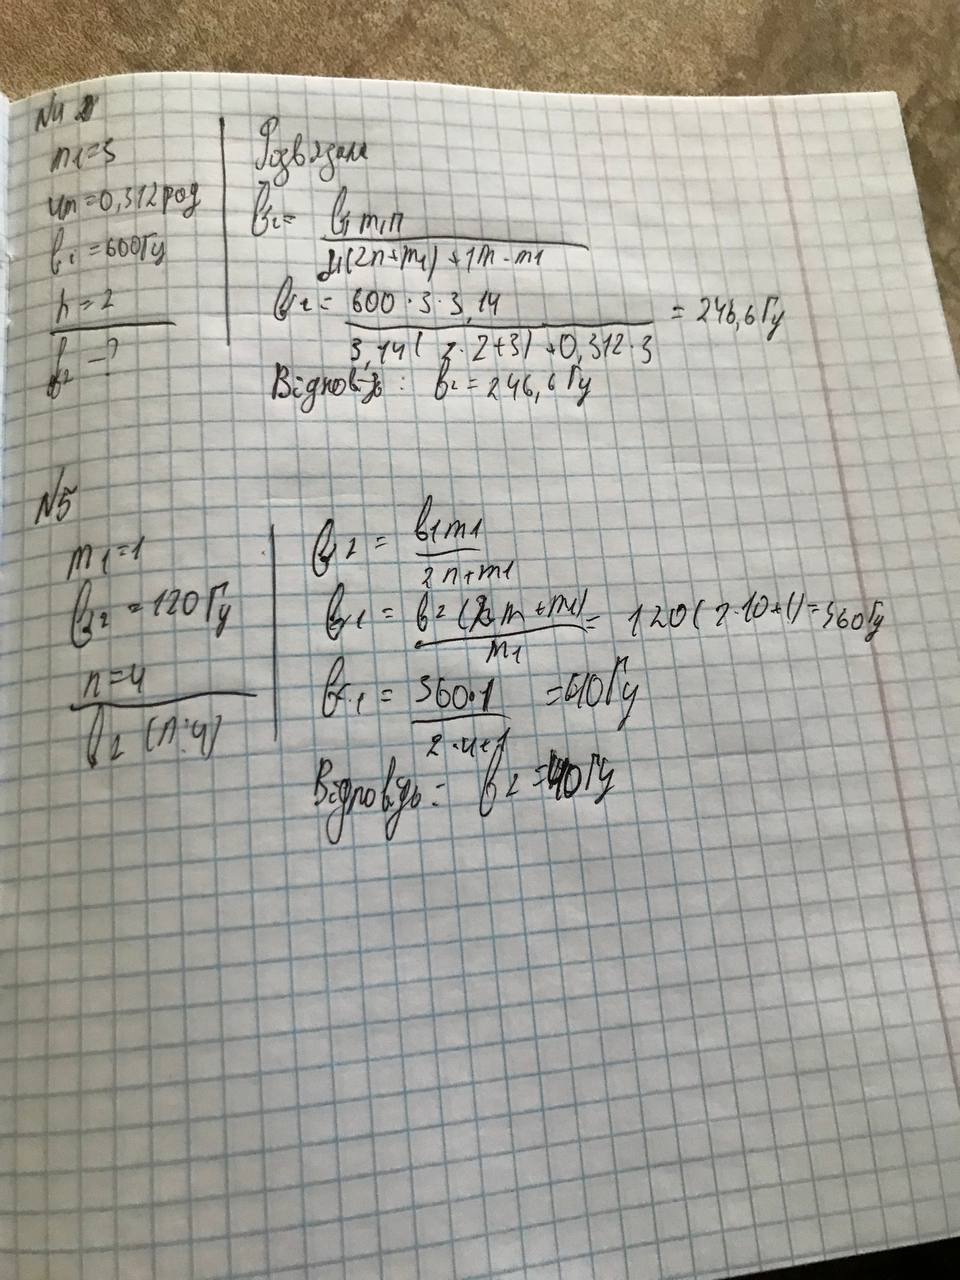 N4
m1=3
um=0,312 рад
f1=600Гц
n=2
f2 -?
Розв'язання
f2= f1 m1π
π(2n+m1)+um·m1
f2 = 600·3·3,14
3,14(2·2+3)+0,312·3
= 246,6 Гц
Відповідь: f2 = 246,6 Гц
N5
m1=1
f2 =120Гц
n=4
f2 (n=4)
f2 = f1m1
2n+m1
f1 = f2(2n+m1)
m1
= 120(2·10+1)=360Гц
= 360·1
2·4+1
=40Гц
Відповідь: f2 =40Гц